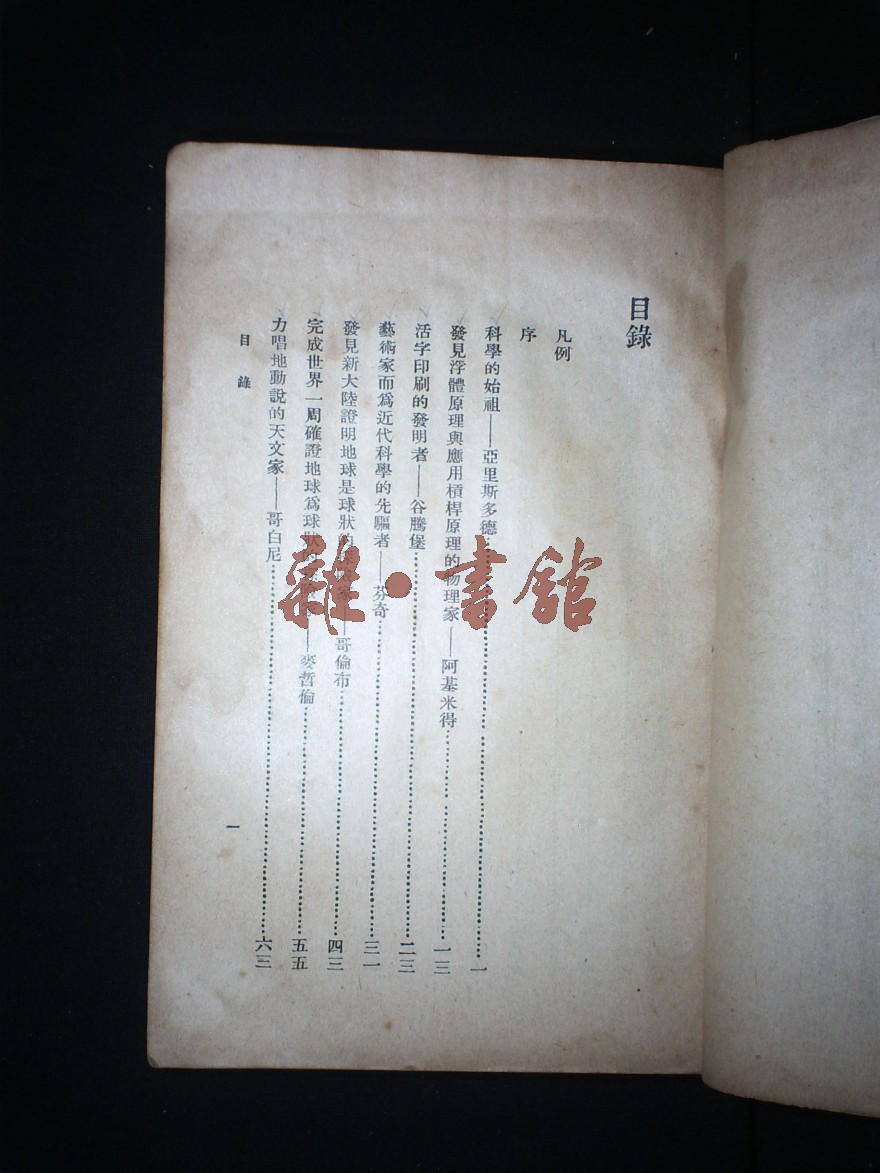 目錄
凡例
序
科學的始祖——亞里斯多德……一
發見浮體原理與應用槓桿原理的物理家——阿基米得……一三
活字印刷的發明者——谷騰堡……二三
藝術家而爲近代科學的先驅者——芬奇……三一
發見新大陸證明地球是球狀的家——哥倫布……四三
完成世界一周確證地球爲球狀的——麥哲倫……五五
力唱地動說的天文家——哥白尼……六三
目錄
一
雜·書館